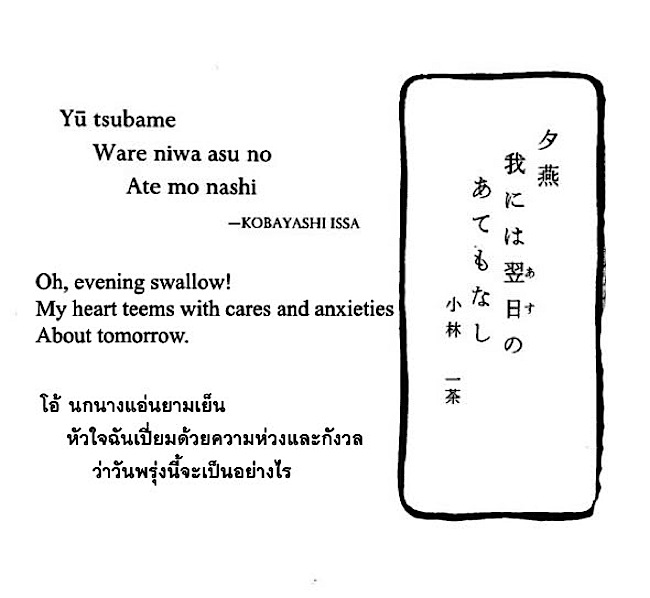 Yū tsubame
Ware niwa asu no
Ate mo nashi
—KOBAYASHI ISSA
Oh, evening swallow!
My heart teems with cares and anxieties
About tomorrow.
โอ้ นกนางแอ่นยามเย็น
หัวใจฉันเปี่ยมด้วยความห่วงและกังวล
ว่าวันพรุ่งนี้จะเป็นอย่างไร
夕燕
我には翌日の
あす
あてもなし
小林 一茶